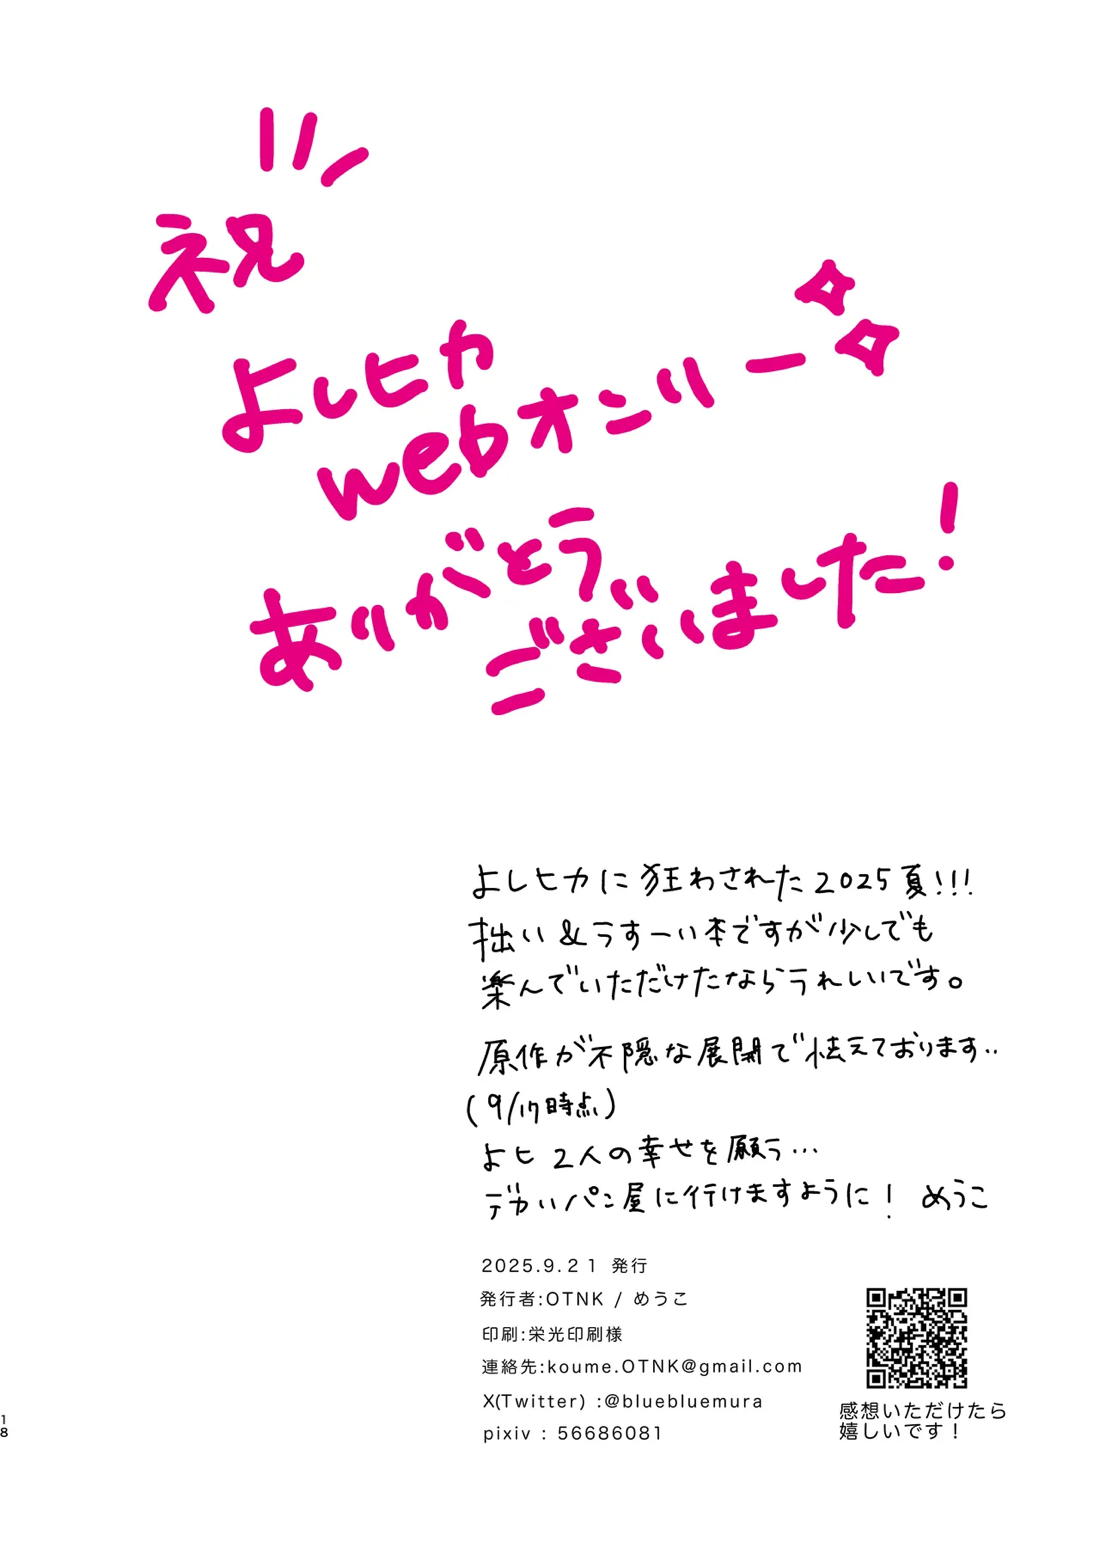 祝
よしヒカ
webオンリー
ありがとう
ございました!
よしヒカに狂わされた2025夏!!!
拙い&うすーい本ですが少しでも
楽んでいただけたならうれしいです。
原作が不隠な展開で怯えております..
(9/17時点)
よヒ 2人の幸せを願う...
デカいパン屋に行けますように! めうこ
2025.9.21 発行
発行者:OTNK / めうこ
印刷:栄光印刷様
連絡先:koume.OTNK@gmail.com
X(Twitter) :@bluebluemura
pixiv : 56686081
感想いただけたら
嬉しいです!
18